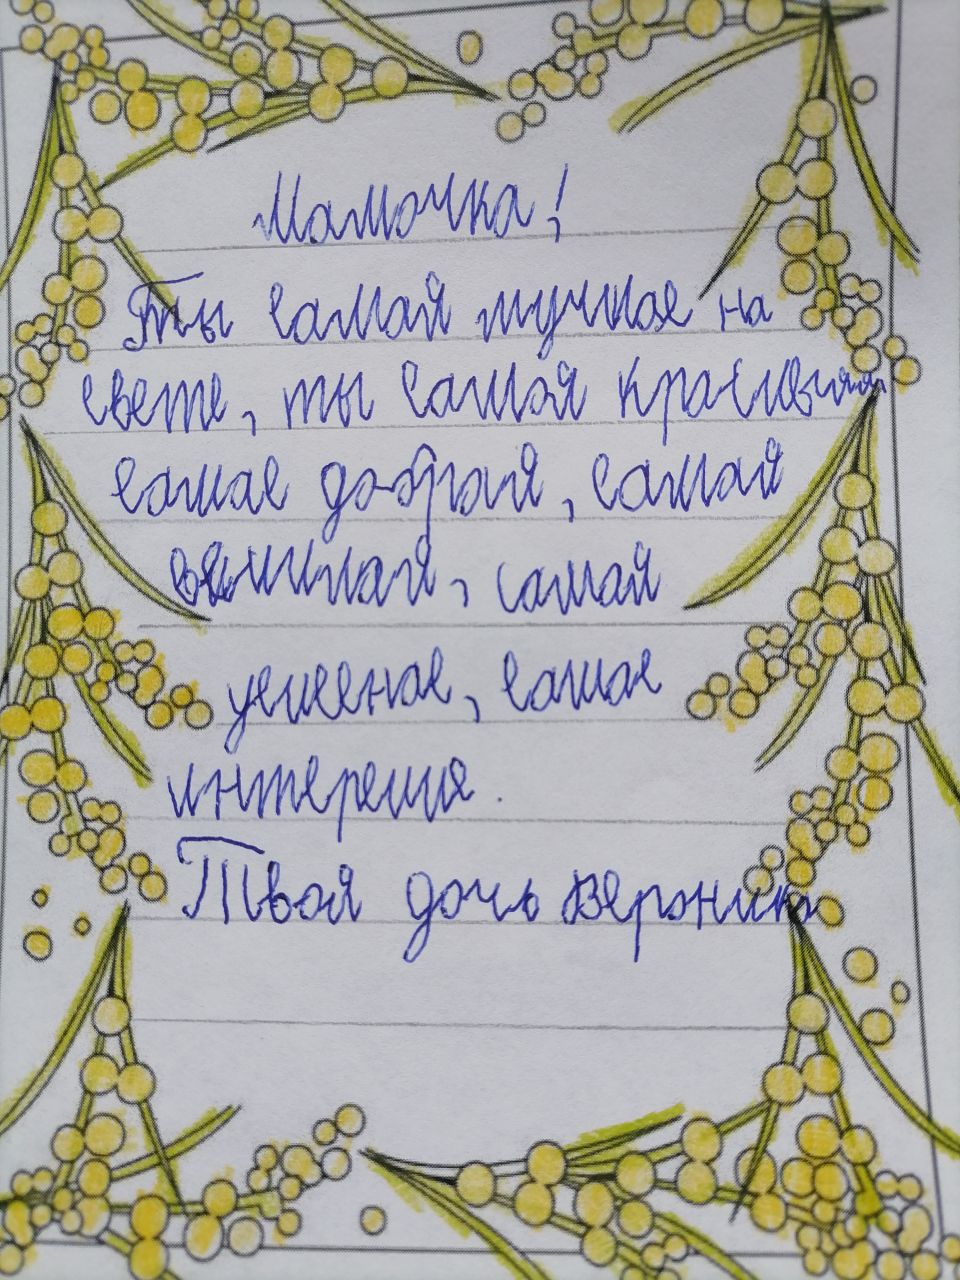 Мамочка!
Ты самая лучшая на
свете, ты самая красивая
самая добрая, самая
самая
самая
Твоя дочь Вероника